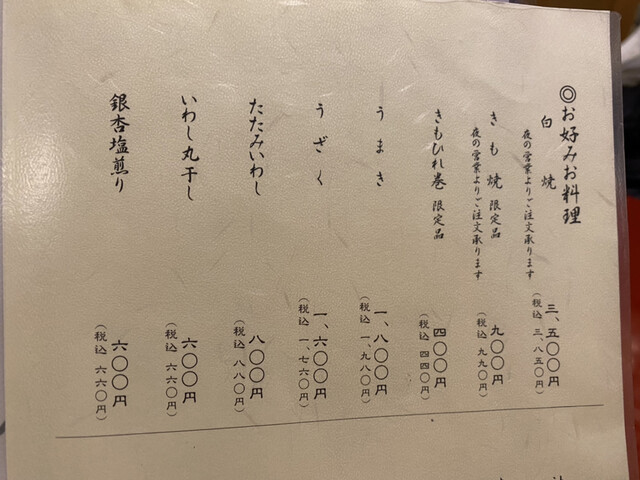 ◎お好みお料理
白焼
三、五〇〇円
夜の営業よりご注文承ります
(税込 三、八五〇円)
きも焼 限定品
九〇〇円
夜の営業よりご注文承ります
(税込 九九〇円)
きもひれ巻 限定品
四〇〇円
(税込 四四〇円)
うまき
一、八〇〇円
(税込 一、九八〇円)
うざく
一、六〇〇円
(税込 一、七六〇円)
たたみいわし
八〇〇円
(税込 八八〇円)
いわし丸干し
六〇〇円
(税込 六六〇円)
銀杏塩煎り
六〇〇円
(税込 六六〇円)